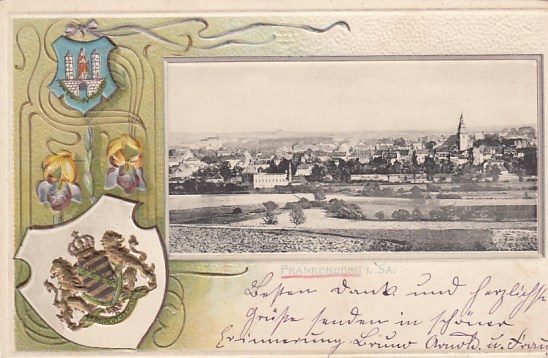 FRANKENBERG i. SA.
Besten Dank und herzlichste
Grüße senden in schöner
Erinnerung. Bruno Arnold u. Frau